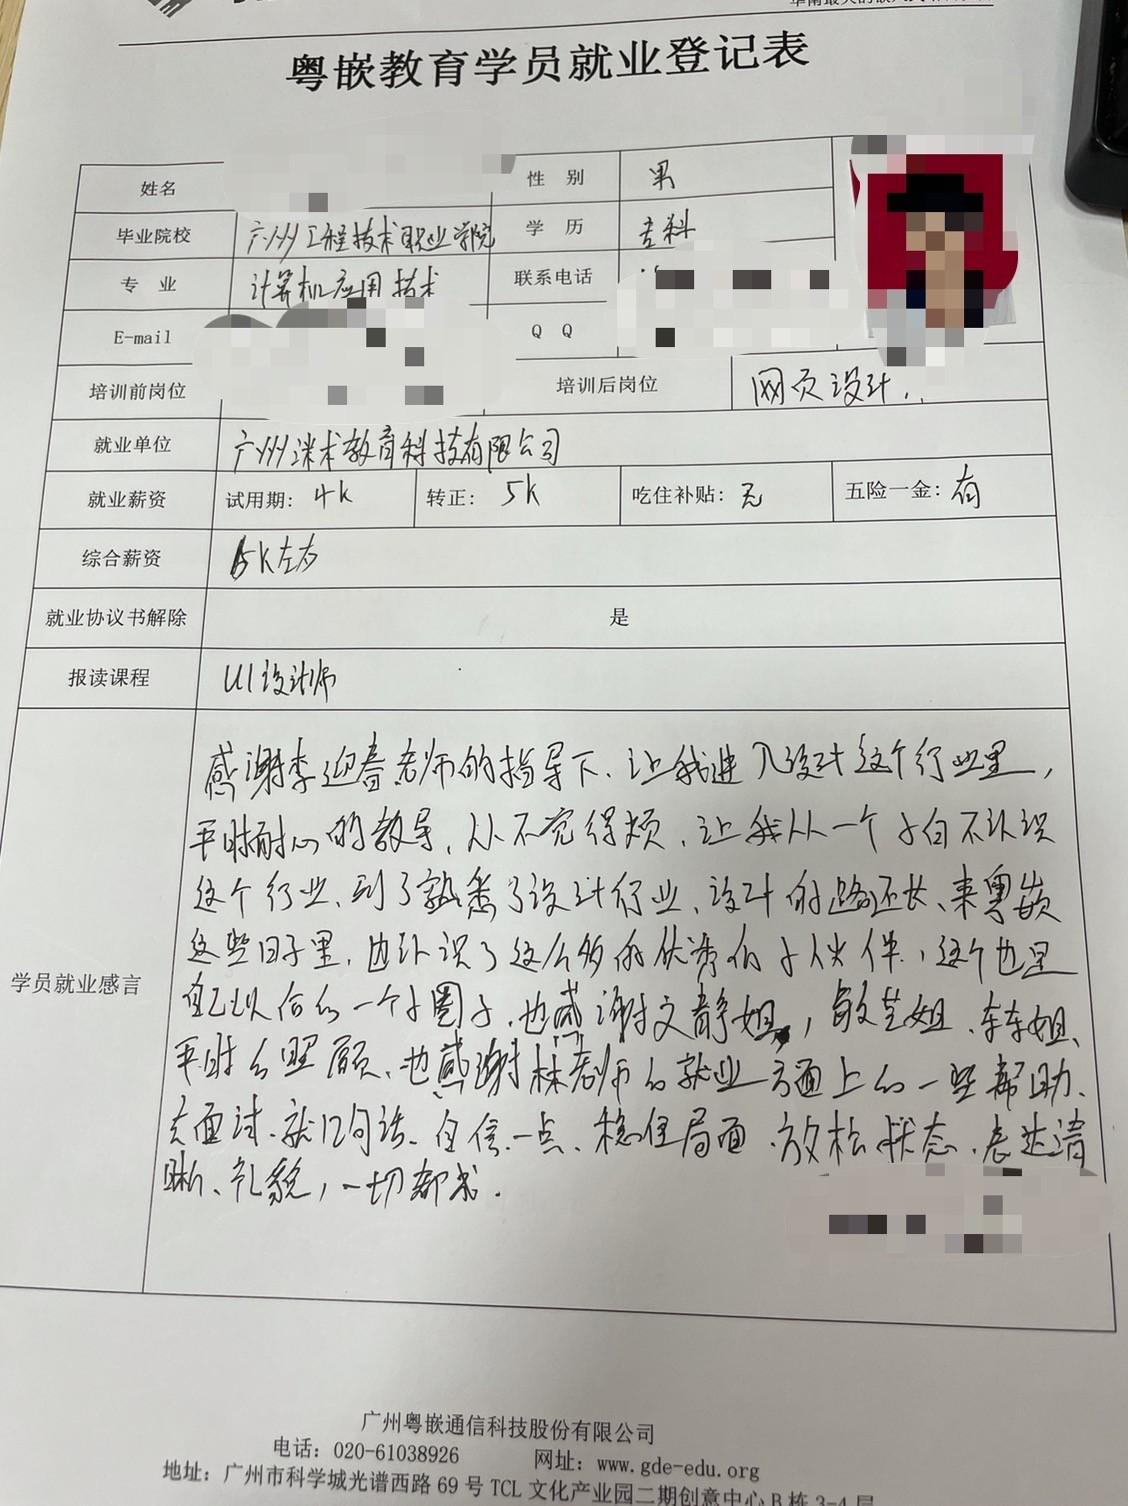 粤嵌教育学员就业登记表
姓名 性 别 男
毕业院校 广州工程技术职业学院 学 历 专科
专 业 计算机应用技术 联系电话
E-mail Q Q
培训前岗位 培训后岗位 网页设计.
就业单位 广州洣术教育科技有限公司
就业薪资 试用期: 4k 转正: 5k 吃住补贴: 无 五险一金: 有
综合薪资 5k左右
就业协议书解除 是
报读课程 UI设计师
学员就业感言
感谢李迎春老师的指导下、让我进入设计这个行业里,
平时耐心的教导、从不觉得烦、让我从一个小白不认识
这个行业、到了熟悉了设计行业、设计的路还长、来粤嵌
这些日子里, 也认识了这么多的优秀的小伙伴, 这个也是
自己以后的一个小圈子、也感谢文静姐, 敏芝姐、车车姐、
平时的照顾、也感谢林老师的就业方面上的一些帮助、
去面试、就12句话、自信一点、稳住局面、放松状态、表达清
晰、礼貌, 一切都成.
广州粤嵌通信科技股份有限公司
电话: 020-61038926 网址: www.gde-edu.org
地址: 广州市科学城光谱西路 69 号 TCL 文化产业园二期创意中心 B 栋 3-4 层